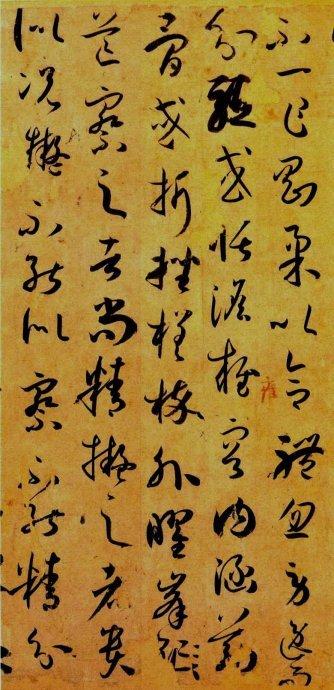 不一乍剛柔以合體忽勞逸而
分驅或恬憺雍容內涵筋
骨或折挫槎枿外曜峯
芒察之者尚精擬之者貴
似況擬不能似察不能精分